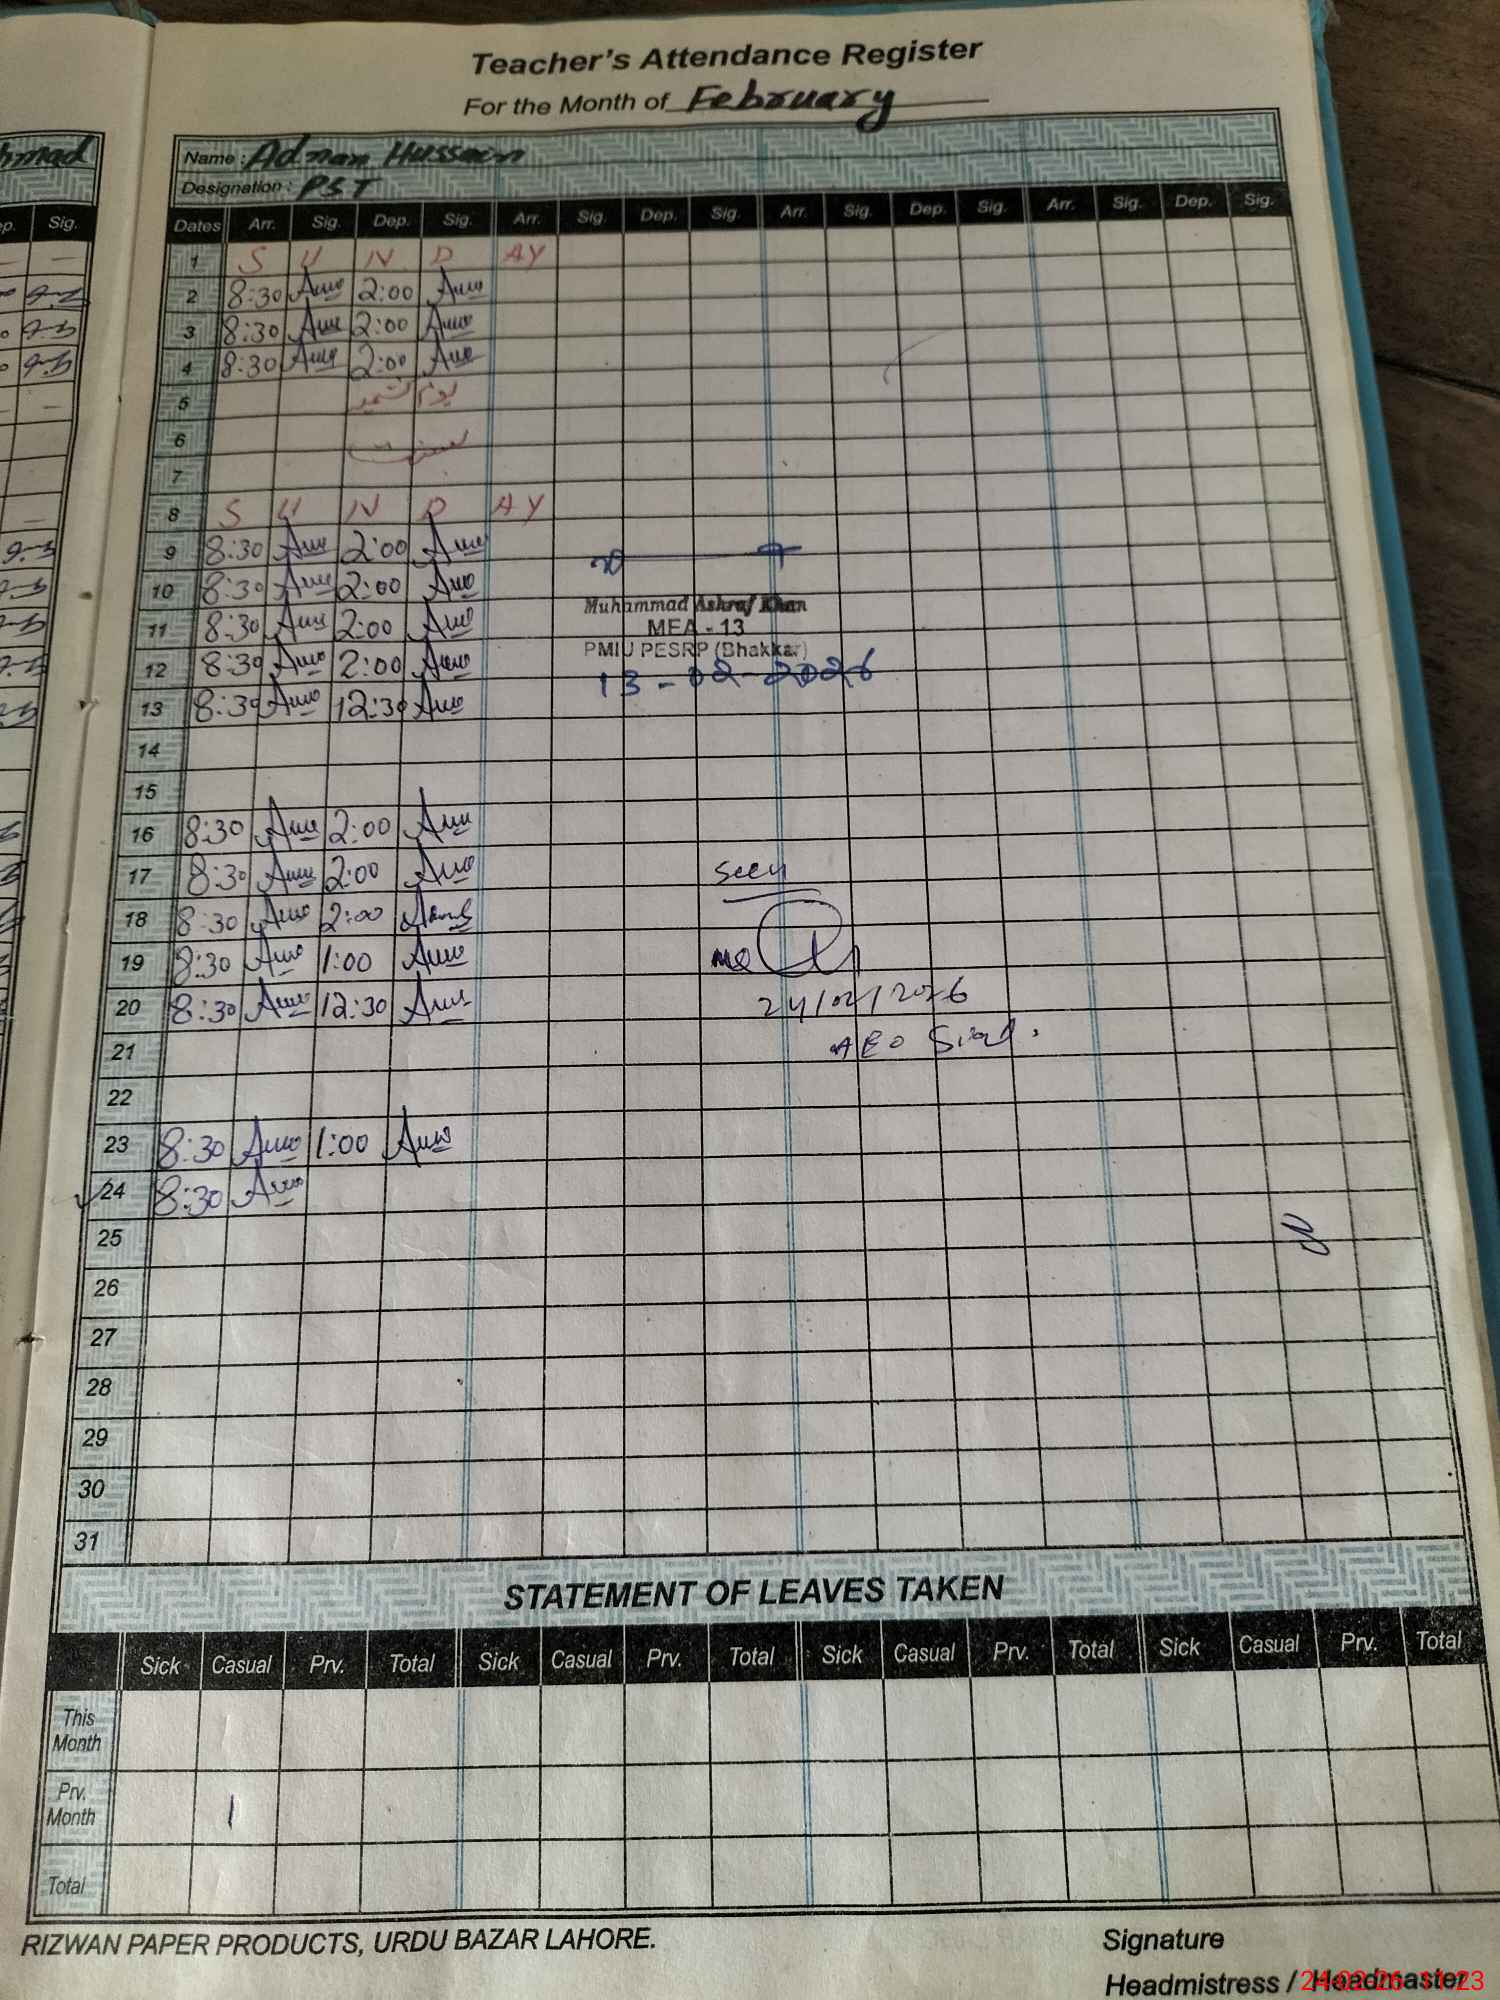 Teacher's Attendance Register
For the Month of February
hmad
Name : Adnan Hussain
Designation : PST
p. Sig.
Dates Arr. Sig. Dep. Sig. Arr. Sig. Dep. Sig. Arr. Sig. Dep. Sig. Arr. Sig. Dep. Sig.
1 S U N D AY
2 8:30 2:00
3 8:30 2:00
4 8:30 2:00
5 یوم کشمیر
6
7
8 S U N D AY
9 8:30 2:00
10 8:30 2:00
Muhammad Ashraf Khan
11 8:30 2:00 MEA - 13
12 8:30 2:00 PMIU PESRP (Bhakkar)
13 8:30 12:30 13-02-2026
14
15
16 8:30 2:00
17 8:30 2:00 Seen
18 8:30 2:00
19 8:30 1:00
20 8:30 12:30 24/02/2026
21 AEO
22
23 8:30 1:00
24 8:30
25
26
27
28
29
30
31
STATEMENT OF LEAVES TAKEN
Sick Casual Prv. Total Sick Casual Prv. Total Sick Casual Prv. Total Sick Casual Prv. Total
This Month
Prv. Month 1
Total
RIZWAN PAPER PRODUCTS, URDU BAZAR LAHORE.
Signature
Headmistress / Headmaster